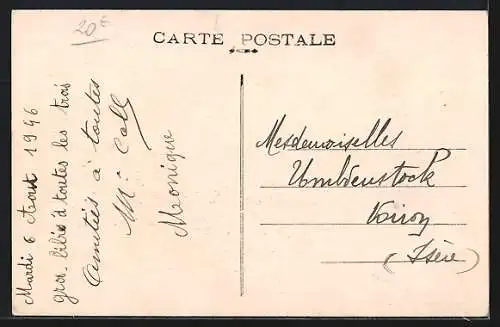 20f
CARTE POSTALE
Mardi 6 Août 1946
gros bibis à toutes les trois
Amitiés à toutes
Monique
Mesdemoiselles
Umbdenstock
Voiron
(Isère)